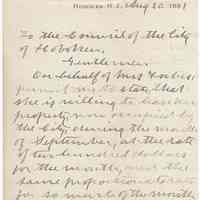 Hoboken, N.J., Aug 20 1881
To the Council of the City
of Hoboken.
Gentlemen:
On behalf of Mrs
permit me to state, that
she is willing to lease her
property, now occupied by
the City, during the month
of September, at the rate
of two hundred dollars
for the month, and the
same proportionate rate
for so much of the month